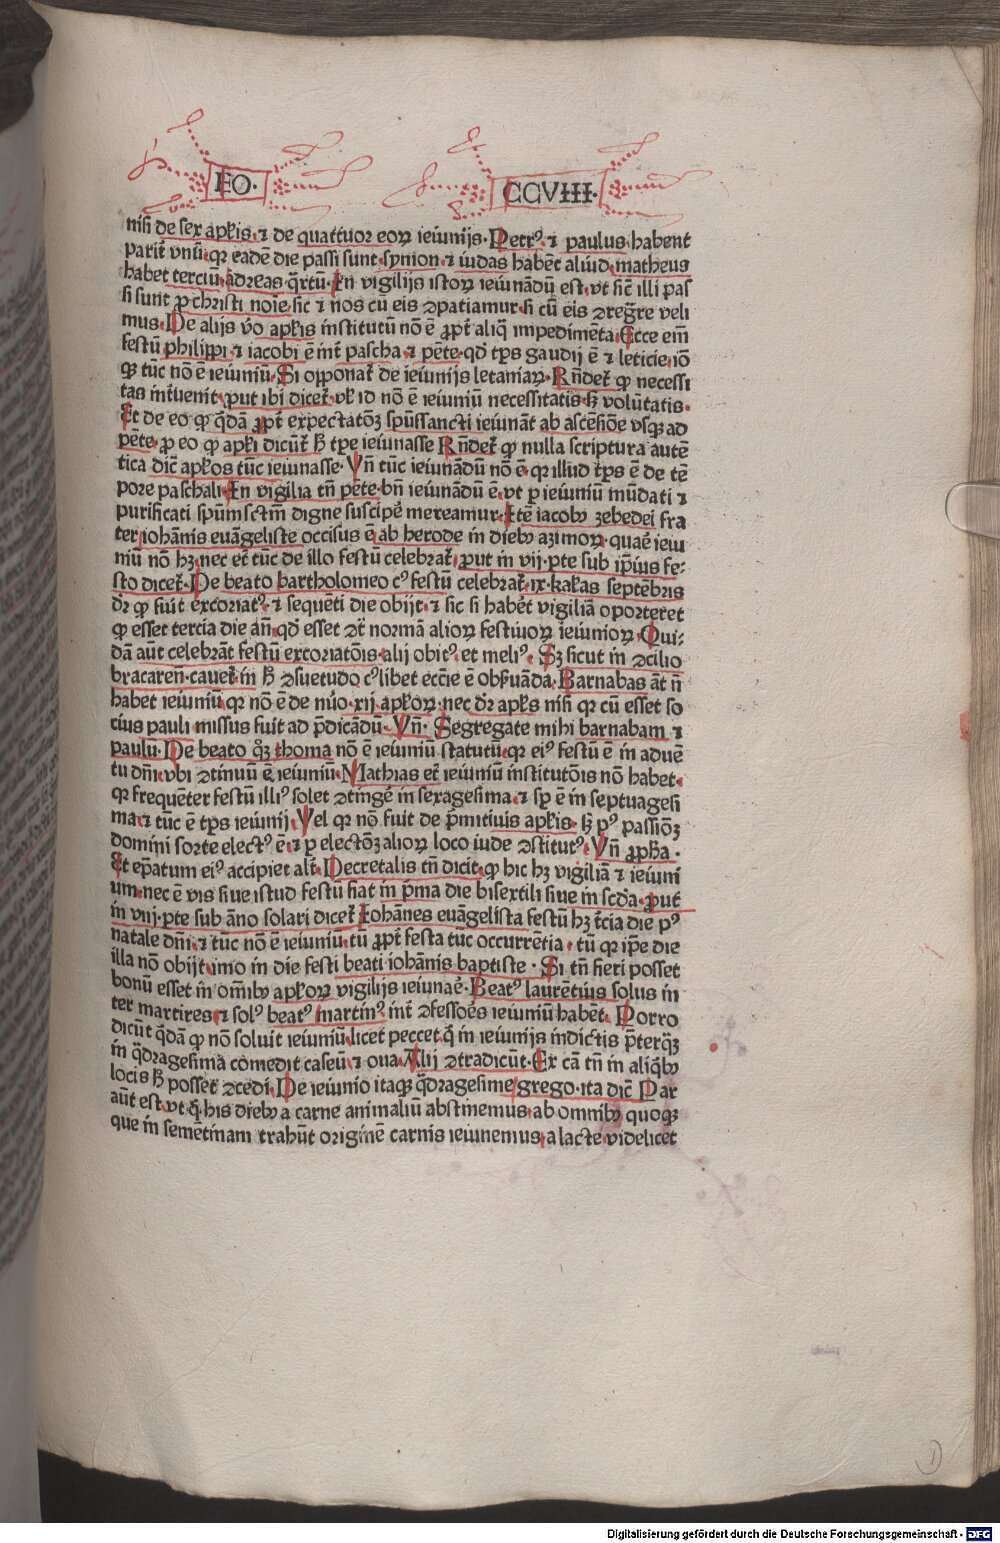 FO. CCVIII.
niſi de ſex apl̄is ⁊ de quattuor eoꝝ ieiunijs. Petrꝰ ⁊ paulus habent
parit̄ vnū qꝛ eadē die paſſi ſunt ſymon ⁊ iudas habēt aliud matheus
habet terciū. ādreas q̄rtū. En vigilijs iſtoꝝ ieiunādū eſt. vt ſic̄ illi paſ
ſi ſunt ꝓ chriſti noīe ſic ⁊ nos cū eis ꝯpatiamur. ſi cū eis ꝯregr̄e veli
mus. De alijs v̓o apl̄is inſtitutū nō ē ꝓpt̄ aliq̄ impedimēta. Ecce em̄
feſtū philippi ⁊ iacobi ē int̄ paſcha ⁊ pēte. qd̓ tp̄s gaudij ē ⁊ leticie. iō
qꝫ tūc nō ē ieiuniū. Si opponat̄ de ieiunijs letaniaꝝ. Rn̄det̄ ꝙ neceſſi
tas int̄uenit. ꝓut ibi dicet̄. vl̓ id nō ē ieiuniū neceſſitatis. ſꝫ volūtatis.
Et de eo ꝙ q̄dā ꝓpt̄ expectatōꝫ ſpūſſancti ieiunāt ab aſcēſiōe vſqꝫ ad
pēte. ꝓ eo ꝙ apl̄i dicūt̄ h̓ tp̄e ieiunaſſe Rn̄det̄ ꝙ nulla ſcriptura autē
tica dic̄ apl̄os tūc ieiunaſſe. Vn̄ tūc ieiunādū nō ē. qꝛ illud tp̄s ē de tē
pore paſchali. En vigilia tn̄ pēte. bn̄ ieiunādū ē. vt p ieiuniū mūdati ⁊
purificati ſpūmſctm̄ digne ſuſcipe̓ mereamur. Itē iacobꝰ zebedei fra
ter iohānis euāgeliſte occiſus ē ab herode in diebꝰ azimoꝝ. quae̓ ieiu
niū nō hꝫ. nec et̄ tūc de illo feſtū celebrat̄. ꝓut in vij. pte ſub ip̄ius fe-
ſto dicet̄. De beato bartholomeo cꝰ feſtū celebrat̄. ix. kal̄as ſeptēbris
dr̄ ꝙ fuit excoriatꝰ. ⁊ ſequēti die obijt. ⁊ ſic ſi habet̄ vigiliā oporteret
ꝙ eſſet tercia die an̄. qd̓ eſſet ꝯt̄ normā alioꝝ feſtiuoꝝ ieiunioꝝ. Qui-
dā aūt celebrāt feſtū excoriatōis. alij obitꝰ. et meliꝰ. Sꝫ ſicut in ꝯcilio
bracaren̄. cauet̄. in h̓ ꝯſuetudo cꝰlibet ecc̄ie ē obſ̓uāda. Barnabas āt n̄
habet ieiuniū. qꝛ nō ē de nu̓o. xij. apl̄oꝝ. nec dr̄ apl̄s niſi qꝛ cū eſſet ſo
cius pauli miſſus fuit ad p̄dicādū. Vn̄. Segregate mihi barnabam ⁊
paulū. De beato q̄ꝫ thoma nō ē ieiuniū ſtatutū. qꝛ eiꝰ feſtū ē in aduē
tu dn̄i. vbi ꝯtinuū ē ieiuniū. Mathias et̄ ieiuniū inſtitutōis nō habet.
qꝛ frequēter feſtū illiꝰ ſolet ꝯtinge̓ in ſexageſima. ⁊ ſp̄ ē in ſeptuageſi
ma. ⁊ tūc ē tp̄s ieiunij. Vel qꝛ nō fuit de p̄mitiuis apl̄is. ſꝫ pꝰ paſſiōꝫ
domini ſorte electꝰ ē. ⁊ p electōꝫ alioꝝ loco iude ꝯſtitutꝰ. Vn̄ ꝓph̄a.
Et ep̄atum eiꝰ accipiet alt̄. Decretalis tn̄ dicit. ꝙ hic hꝫ vigiliā ⁊ ieiuni
um. nec ē vis ſiue iſtud feſtū fiat in p̄ma die biſextili ſiue in ſcd̓a. ꝓut
in viij. pte ſub āno ſolari dicet̄ Iohānes euāgeliſta feſtū hꝫ t̄cia die pꝰ
natale dn̄i. ⁊ tūc nō ē ieiuniū. tū ꝓpt̄ feſta tūc occurrētia. tū qꝛ ip̄e die
illa nō obijt. imo in die feſti beati iohānis baptiſte. Si tn̄ fieri poſſet
bonū eſſet in om̄ibꝰ apl̄oꝝ vigilijs ieiunae̓. Beatꝰ laurētius ſolus in
ter martires. ⁊ ſolꝰ beatꝰ martinꝰ int̄ ꝯfeſſoe̓s ieiuniū habet. Porro
dicūt q̄dā ꝙ nō ſoluit ieiuniū. licet peccet. q̄ in ieiunijs indictis p̄terq̄ꝫ
in q̄drageſima comedit caſeū ⁊ oua. Alij ꝯtradicūt. Ex cā tn̄ in aliq̄bꝰ
locis h̓ poſſet ꝯcedi. De ieiunio itaqꝫ q̄drageſime grego. ita dic̄ Par
aūt eſt. vt q̄ his diebꝰ a carne animaliū abſtinemus. ab omnibꝰ quoqꝫ
que in ſemētinam trahūt originē carnis ieiunemus. a lacte videlicet
Digitalisierung gefördert durch die Deutsche Forschungsgemeinschaft - DFG